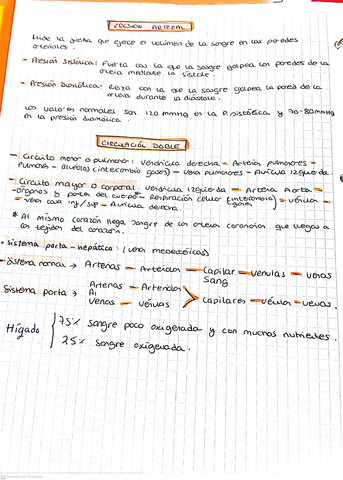 PRESIÓN ARTERIAL
Mide la fuerza que ejerce el volumen de la sangre en las paredes
arteriales.
- Presión sistólica: Fuerza con la que la sangre golpea las paredes de la
arteria mediante la sístole.
- Presión Diastólica: fuerza con la que la sangre golpea la pared de la
arteria durante la diástole.
Los valores normales son 120 mmHg en la P. sistólica y 70-80mmHg
en la presión diastólica.
CIRCULACIÓN DOBLE
- Circuito menor o pulmonar: Ventrículo derecha - Arteria pulmonares -
Pulmón - alveolos (intercambio gases) - vena pulmonares - Aurícula izquierda.
- Circuito mayor o corporal: Ventrículo izquierda - Arteria Aorta -
- órganos y partes del cuerpo - Respiración celular (intercambio gases) - vénulas -
- vena cava inf/sup - Aurícula derecha.
* Al mismo corazón llega sangre de las arterias coronarias que llegan a
los tejidos del corazón.
• Sistema porta-hepático: (vena mesentéricas)
- Sistema normal → Arterias - Arteriolas - Capilar Sang - Venulas - venas
Sistema porta → Arterias - Arteriolas
Venas - vénulas > Capilares - vénulas - venas.
Hígado { 75% sangre poco oxigenada y con muchos nutrientes.
25% sangre oxigenada.